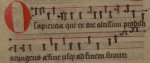 O
sapientia que ex ore altissimi prodisti
attingens a fine usque ad finem fortiter